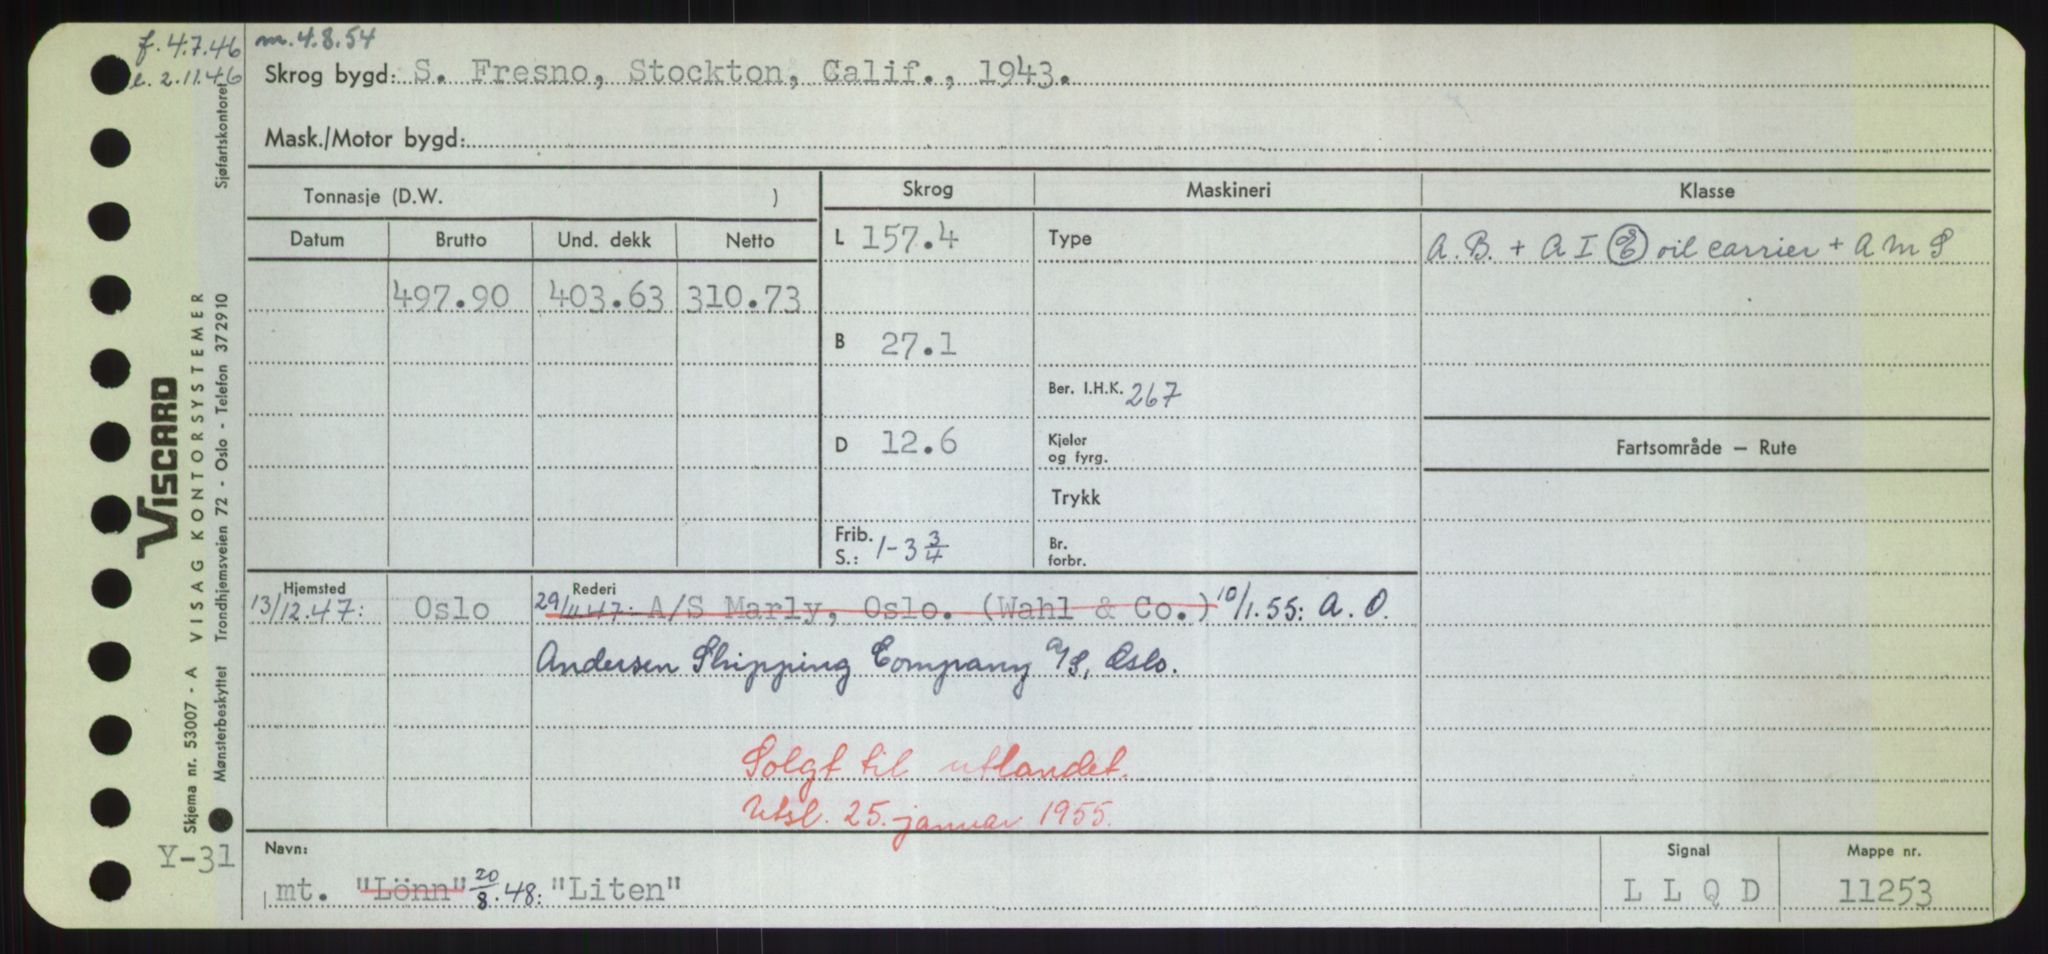 f. 4.7.46 m. 4.8.54
e. 2.11.46
Skrog bygd: S. Fresno, Stockton, Calif., 1943.
Mask./Motor bygd:
Tonnasje (D.W. )
Skrog Maskineri Klasse
Datum Brutto Und. dekk Netto
L 157.4 Type A.B. + A I Ⓔ oil carrier + A M S
497.90 403.63 310.73
B 27.1
Ber. I.H.K. 267
D 12.6 Kjeler og fyrg.
Fartsområde – Rute
Trykk
Frib. S.: 1-3 3/4 Br. forbr.
Hjemsted Rederi
13/12.47: Oslo 29/11.47: A/S Marly, Oslo. (Wahl & Co.) 10/1.55: A. O.
Andersen Shipping Company A/S, Oslo.
Solgt til utlandet.
Utsl. 25. januar 1955.
Navn: Signal Mappe nr.
mt. "Lönn" 20/8.48: "Liten" L L Q D 11253
Y-31
VISCARD
Skjema nr. 53007 - A VISAG KONTORSYSTEMER
Mønsterbeskyttet Trondhjemsveien 72 - Oslo - Telefon 372910 Sjøfartskontoret